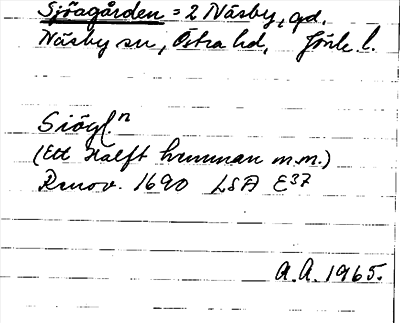 Sjöagården = 2 Näsby, gd.
Näsby sn, Östra hd, Jönk. l.
Siögl.n
(Ett Halft hemman m.m.)
Renov. 1690 LSA E37
A.A. 1965.